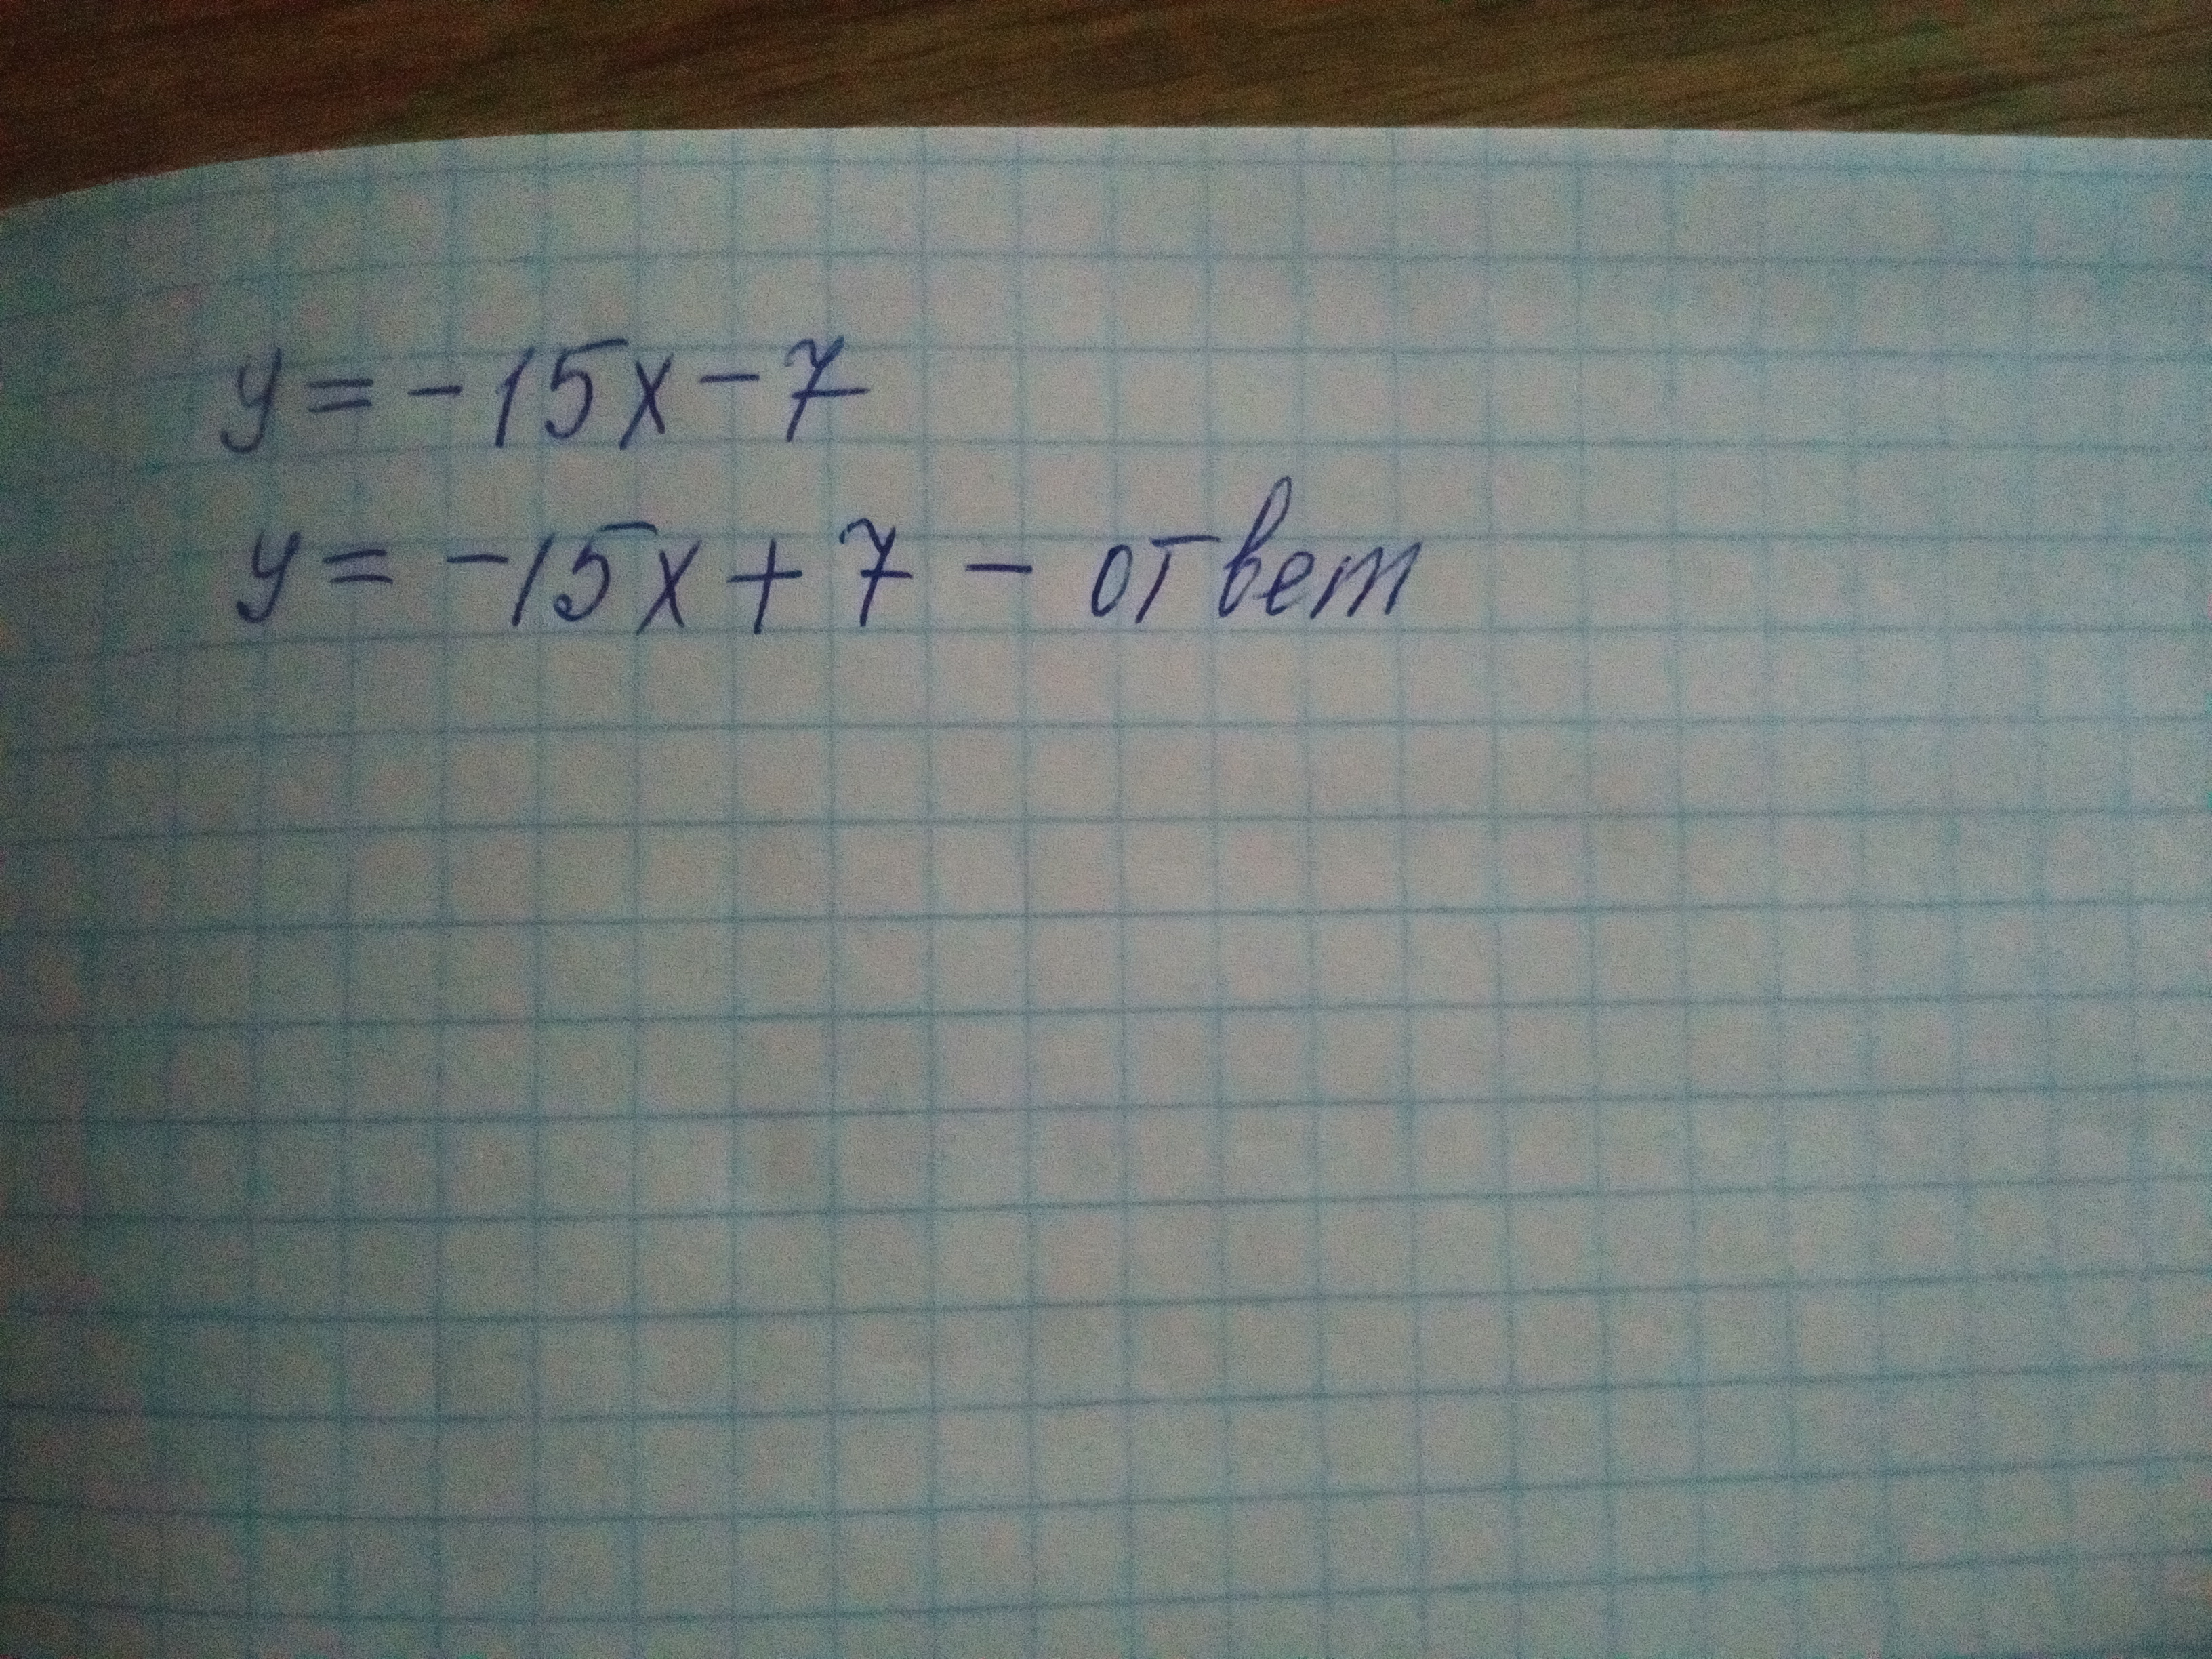 y = -15x - 7
y = -15x + 7 - ответ